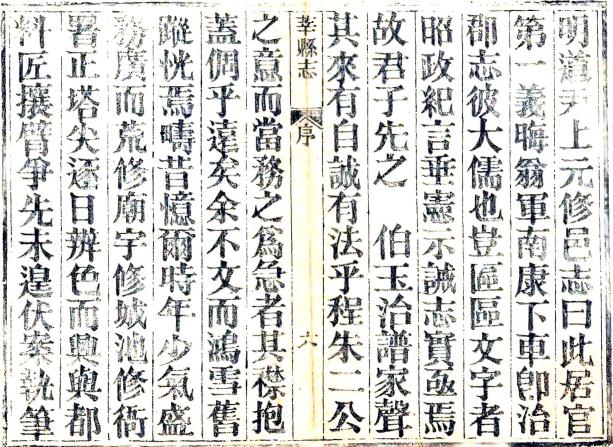 明道尹上元修邑志曰此居官
第一義晦翁軍南康下車卽治
郡志彼大儒也豈區區文字者
昭政紀言垂憲示誠志實亟焉
故君子先之　伯玉治譜家聲
其來有自誠有法乎程朱二公
莘縣志　序　六
之意而當務之爲急者其襟抱
蓋倜乎遠矣余不文而鴻雪舊
蹤恍焉疇昔憶爾時年少氣盛
務廣而荒修廟宇修城池修衙
署正塔尖逐日辨色而興與都
料匠攘臂爭先未遑伏案執筆